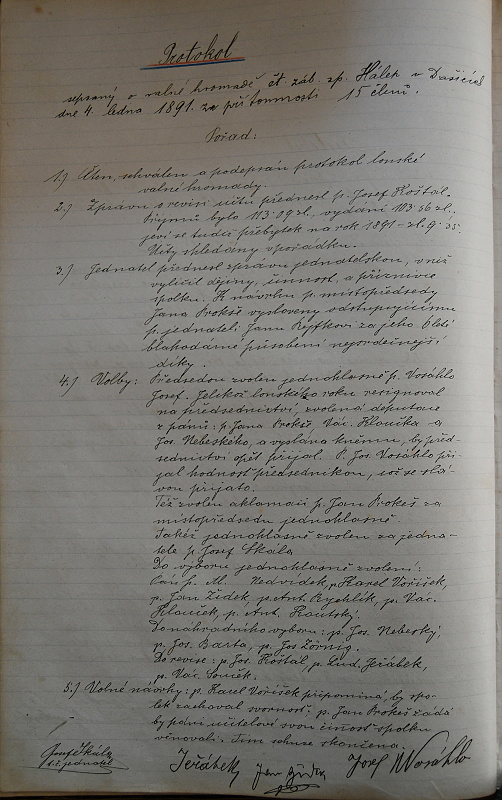 Protokol
sepsaný o valné hromadě čt. záb. sp. Hálek v Dašicích
dne 4. ledna 1891. za přítomnosti 15 členů.
Pořad:
1.) Čten, schválen a podepsán protokol lonské
valné hromady.
2.) Zprávu o revisi účtů přednesl p. Josef Koštál.
Příjmů bylo 113·09 zl., vydání 103·56 zl.,
jeví se tudíž přebytek na rok 1891 – zl. 9·53.
Účty shledány v pořádku.
3.) Jednatel přednesl zprávu jednatelskou, v níž
vylíčil dějiny, činnost, a příznivce
spolku. K návrhu p. místopředsedy
Jana Prokše vysloveny odstupujícímu
p. jednateli Janu Rejfkovi za jeho 6 leté
blahodárné působení nejsrdečnější
díky.
4.) Volby: Předsedou zvolen jednohlasně p. Vosáhlo
Josef. Jelikož lonského roku resignoval
na předsednictví, zvolená deputace
z pánů: p. Jana Prokeš, Vác. Kloučka a
Jos. Nebeského, a vyslána k němu, by před-
sednictví opět přijal. P. Jos. Vosáhlo při-
jal hodnost předsednickou, což se slá-
vou přijato.
Též zvolen aklamací p. Jan Prokeš za
místopředsedu jednohlasně.
Takéž jednohlasně zvolen za jedna-
tele p. Josef Škala
Do výboru jednohlasně zvoleni:
Páni p. M. Nedvídek, p. Karel Voříšek,
p. Jan Žídek, p. Ant. Rychlík, p. Vác.
Klouček, p. Ant. Koutský.
Do náhradního výboru: p. Jos. Nebeský,
p. Jos. Barta, p. Jos. Zörnig.
Do revise: p. Jos. Koštál, p. Lud. Jeřábek,
p. Vác. Souček.
5.) Volné návrhy: p. Karel Voříšek připomíná, by spo-
lek zachoval svornost, p. Jan Prokeš žádá
by páni učitelové svou činnost spolku
věnovali. Tím schůze skončena.
Josef Škála
t. č. jednatel
Jeřábek Jan Žídek Josef Vosáhlo